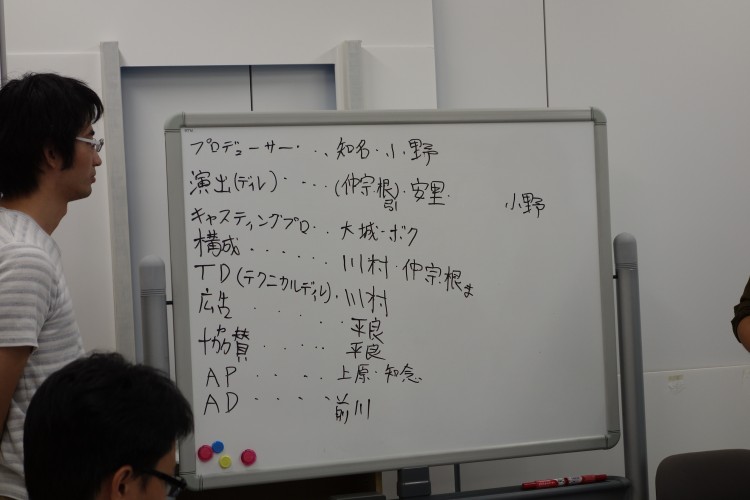 プロデューサー・・、知名・小野
演出(ディレ)・・・・(仲宗根)・安里・
引
小野
キャスティングプロ・・大城-ボク
構成・・・・・・川村・仲宗根ま
TD(テクニカルディレ)・川村
広告・・・・・平良
協賛・・・・・平良
AP・・・・上原・知念
AD・・・・・前川